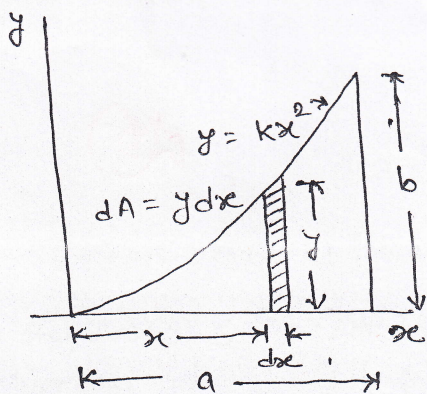 y
y = kx²
dA = ydx
b
y
x
x
dx
a